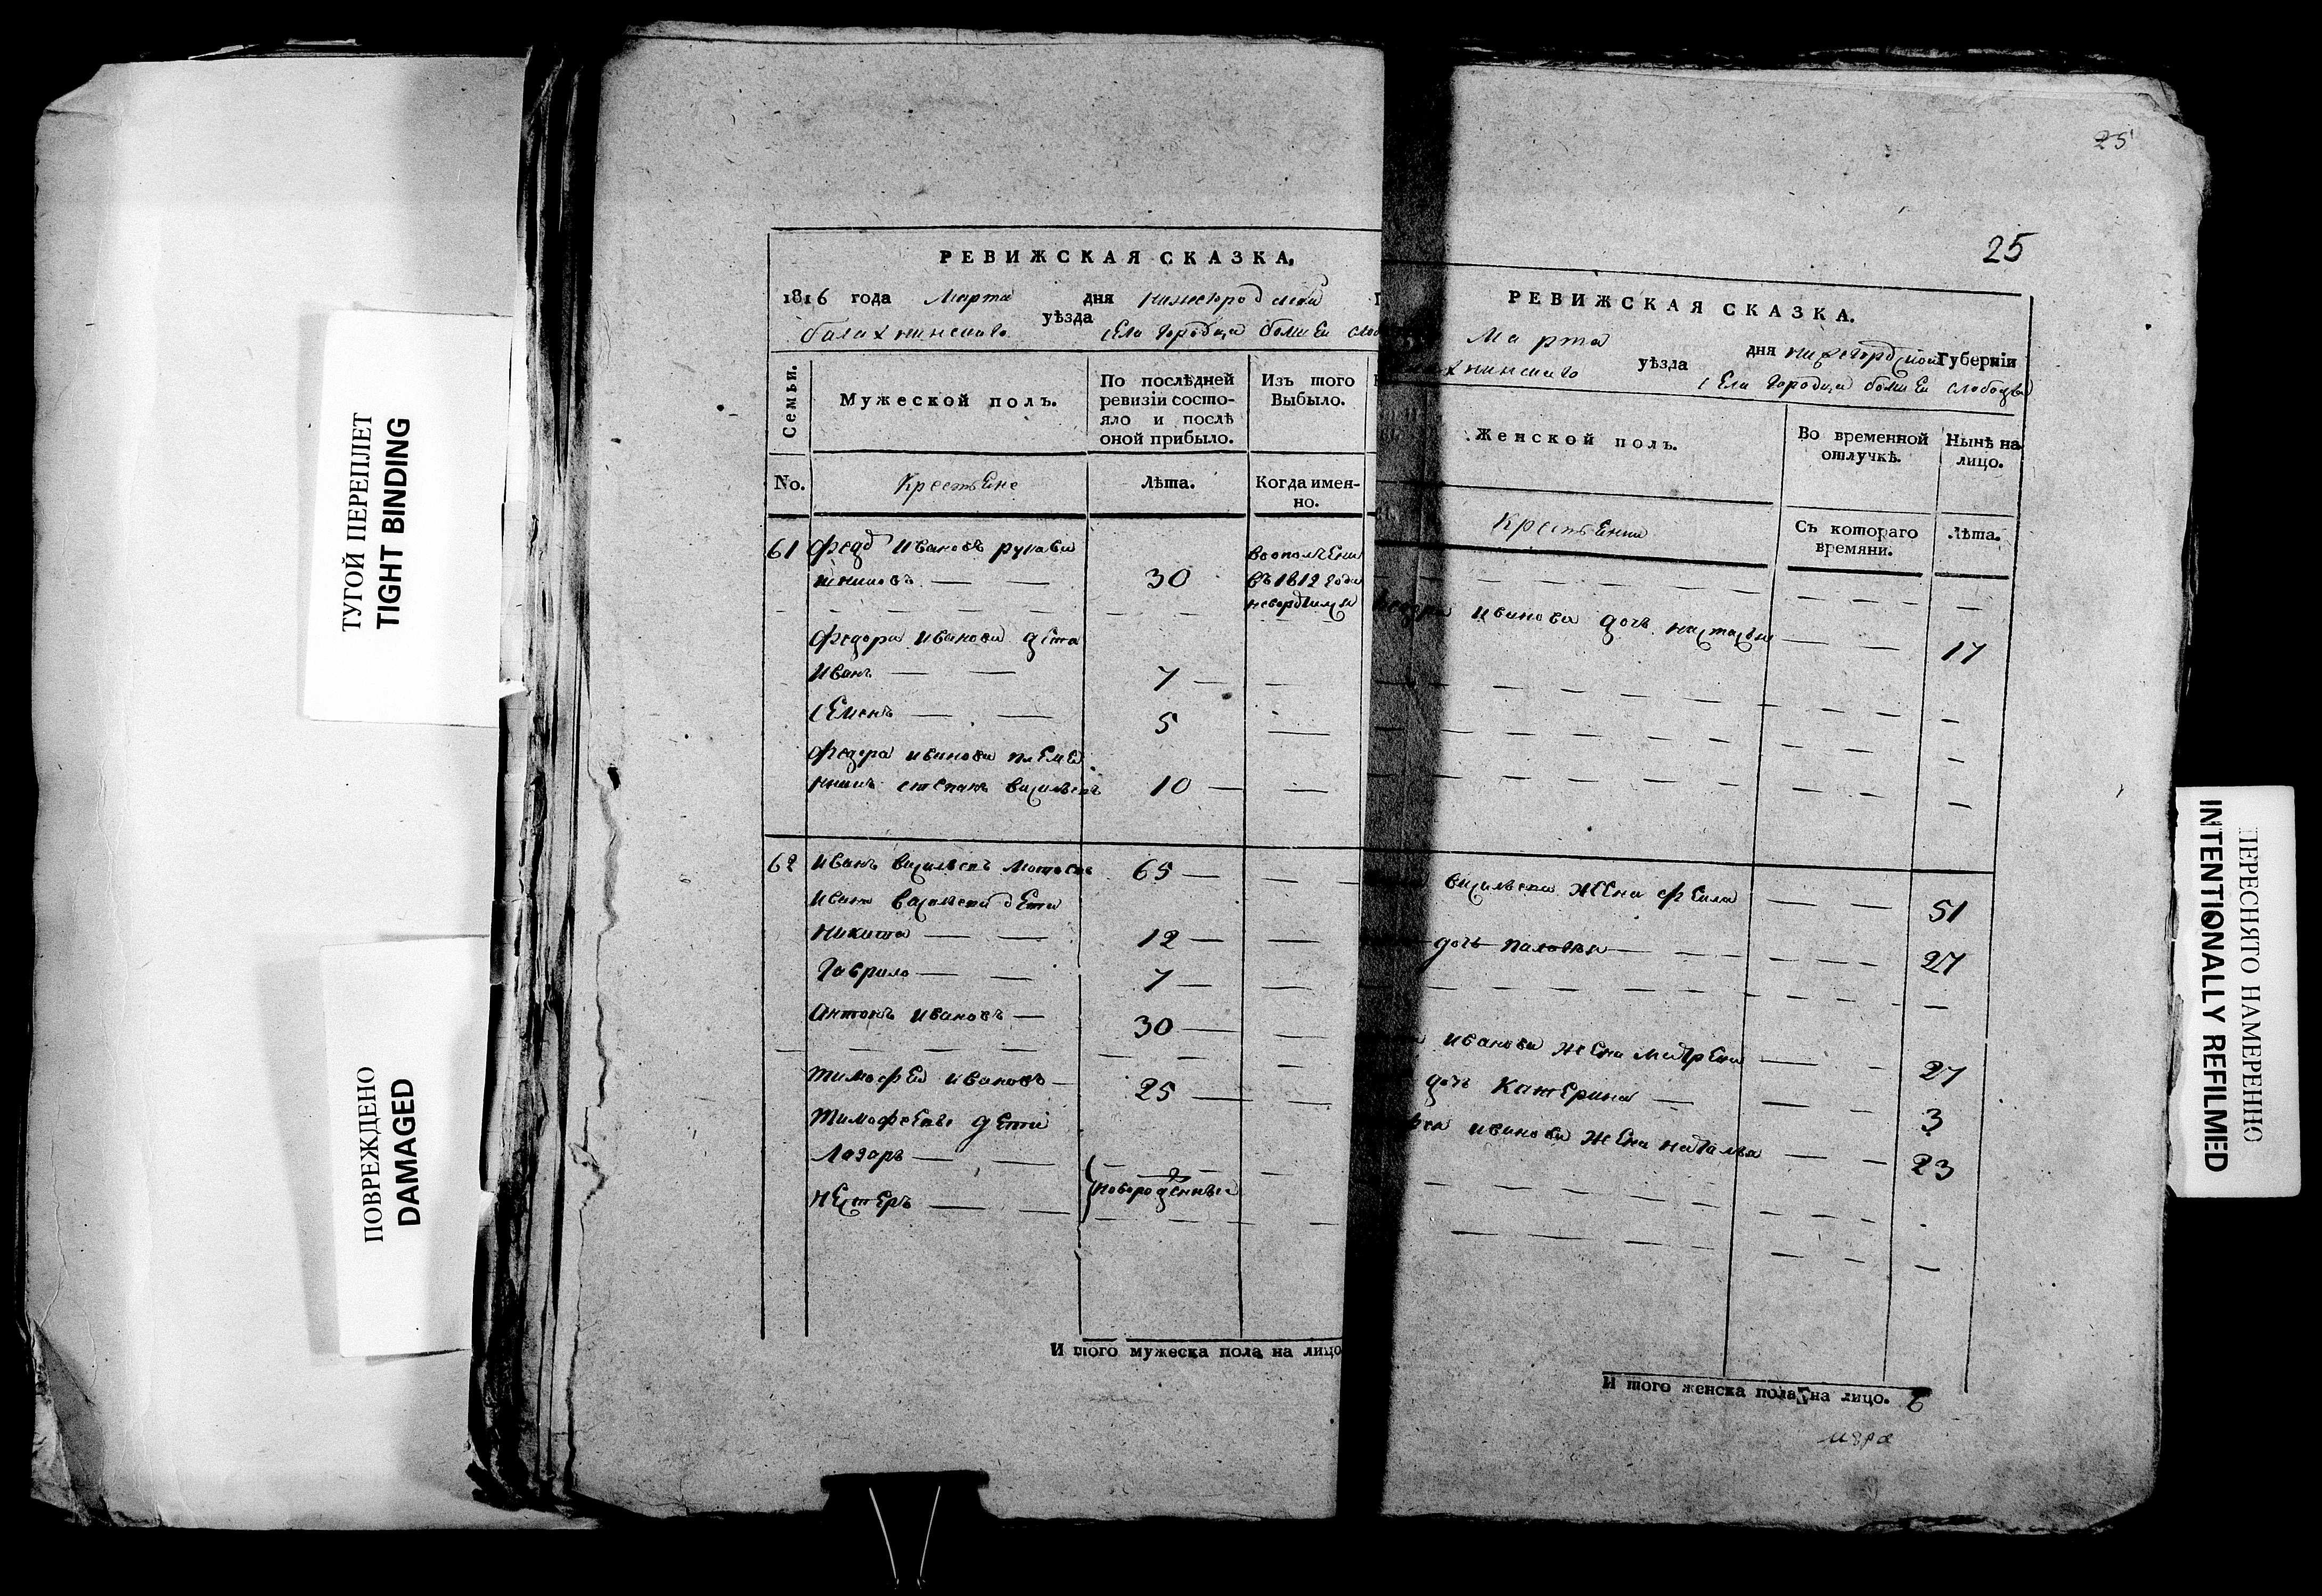 ТУГОЙ ПЕРЕПЛЕТ
TIGHT BINDING
ПОВРЕЖДЕНО
DAMAGED
РЕВИЖСКАЯ СКАЗКА,
1816 года Марта дня нижегородской
балахнинскаго уѣзда села городца
Семьи.
Мужеской полъ.
По послѣдней
ревизіи состо-
яло и послѣ
оной прибыло.
Изъ того
Выбыло.
No.
Крестьене
Лѣта.
Когда имен-
но.
61 Федоръ Ивановъ рукави
шниковъ — — 30
въ 1812 годе
Федора Иванова дети
Иванъ — — 7 —
Семенъ — — 5
Федора иванова племя
никъ степанъ васильевъ 10 —
62 Иванъ васильевъ 65 —
Ивана васильева дети
Никита — — 12 —
Гаврило — — 7 —
Антонъ Ивановъ — 30 —
Тимофей ивановъ — 25 —
Тимофеевы дети
Лазарь — —
Нестеръ — —
новорожденные
И того мужеска пола на лицо
25
25
РЕВИЖСКАЯ СКАЗКА.
Марта дня нижегородской Губерніи
уѣзда села городца слободы
Женской полъ.
Во временной
отлучкѣ.
Нынѣ на
лицо.
Съ котораго
времяни.
Лѣта.
иванова дочь настасья — — 17
васильева жена — — 51
дочь — 27
иванова жена матрена — — 27
дочь Катерина — 3
иванова жена наталья — — 23
И того женска пола на лицо. 6
ПЕРЕСНЯТО НАМЕРЕННО
INTENTIONALLY REFILMED